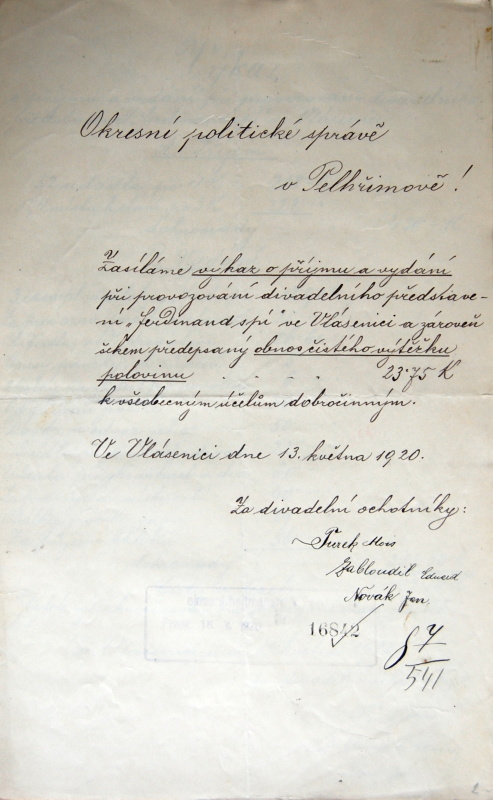 Okresní politické správě
v Pelhřimově!
Zasíláme výkaz o příjmu a vydání
při provozování divadelního představe-
ní „Ferdinand spí" ve Vlásenici a zároveň
šekem předepsaný obnos čistého výtěžku
polovinu . . . . 23·75 K
k všeobecným účelům dobročinným.
Ve Vlásenici dne 13. května 1920.
Za divadelní ochotníky:
Turek Alois
Zabloudil Eduard
Novák Jan
16842